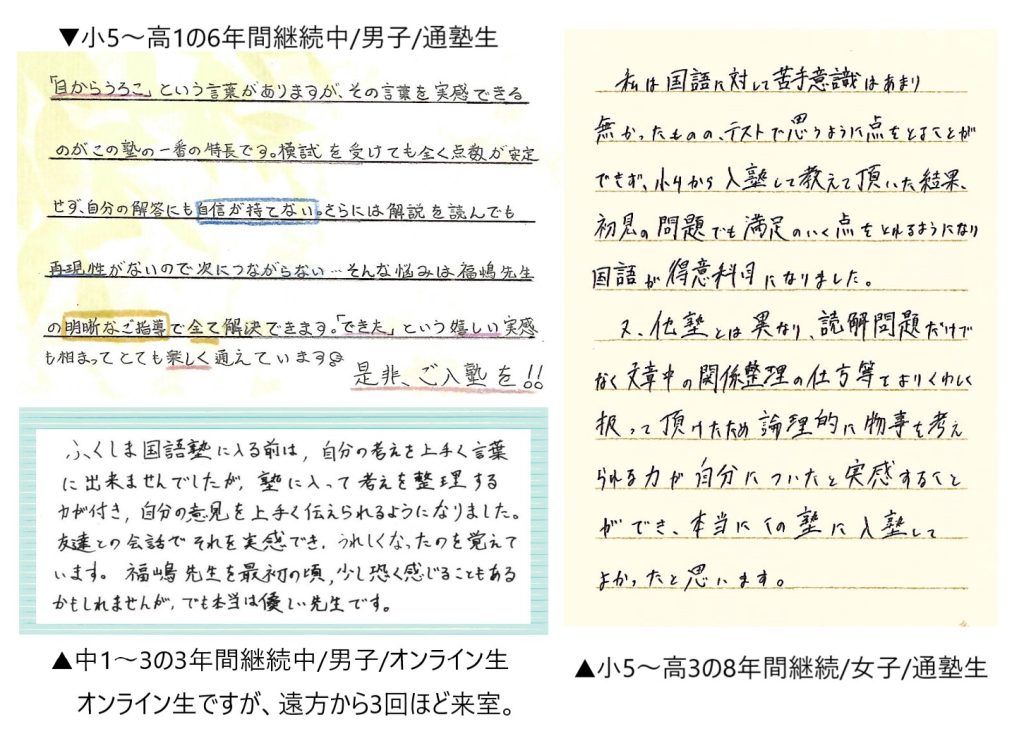 ▼小5～高1の6年間継続中/男子/通塾生
「目からうろこ」という言葉がありますが、その言葉を実感できる
のがこの塾の一番の特長です。模試を受けても全く点数が安定
せず、自分の解答にも自信が持てない。さらには解説を読んでも
再現性がないので次につながらない…そんな悩みは福嶋先生
の明晰なご指導で全て解決できます。「できた」という嬉しい実感
も相まってとても楽しく通えています
是非、ご入塾を!!
ふくしま国語塾に入る前は、自分の考えを上手く言葉
に出来ませんでしたが、塾に入って考えを整理する
力が付き、自分の意見を上手く伝えられるようになりました。
友達との会話でそれを実感でき、うれしくなったのを覚えて
います。福嶋先生を最初の頃、少し恐く感じることもある
かもしれませんが、でも本当は優しい先生です。
▲中1～3の3年間継続中/男子/オンライン生
オンライン生ですが、遠方から3回ほど来室。
私は国語に対して苦手意識はあまり
無かったものの、テストで思うように点をとることが
できず、小4から入塾して教えて頂いた結果、
初見の問題でも満足のいく点をとれるようになり
国語が得意科目になりました。
又、他塾とは異なり、読解問題だけで
なく文章中の関係整理の仕方等をよりくわしく
扱って頂けたため論理的に物事を考え
られる力が自分についたと実感すること
ができ、本当にこの塾に入塾して
よかったと思います。
▲小5～高3の8年間継続/女子/通塾生